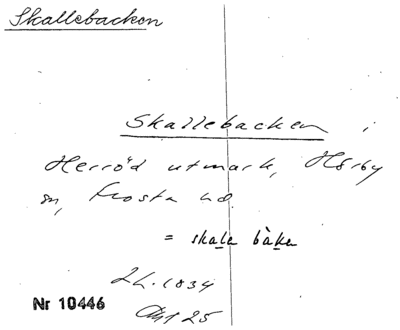 Skallebacken
Skallebacken i
Herröd utmark, Hörby
sn, Frosta hd.
= skale bàken
24.1034
Nr 10446
25